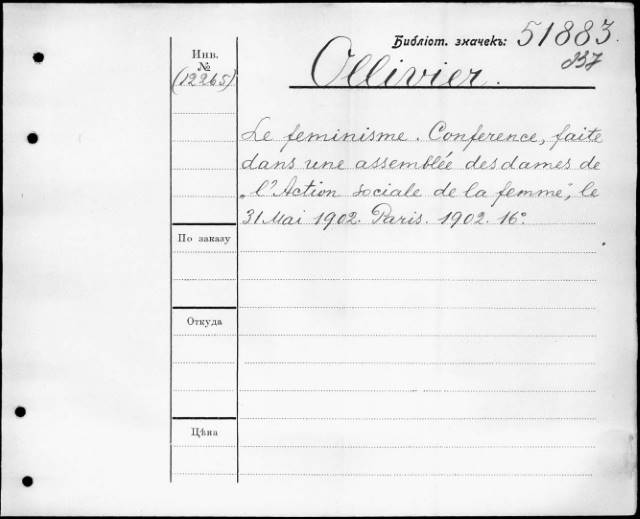 Библіот. значекъ: 51883.
837
Инв.
№
(12265)
Ollivier.
Le feminisme. Conference, faite
dans une assemblée des dames de
„l'Action sociale de la femme", le
31 Mai 1902. Paris. 1902. 16º.
По заказу
Откуда
Цѣна